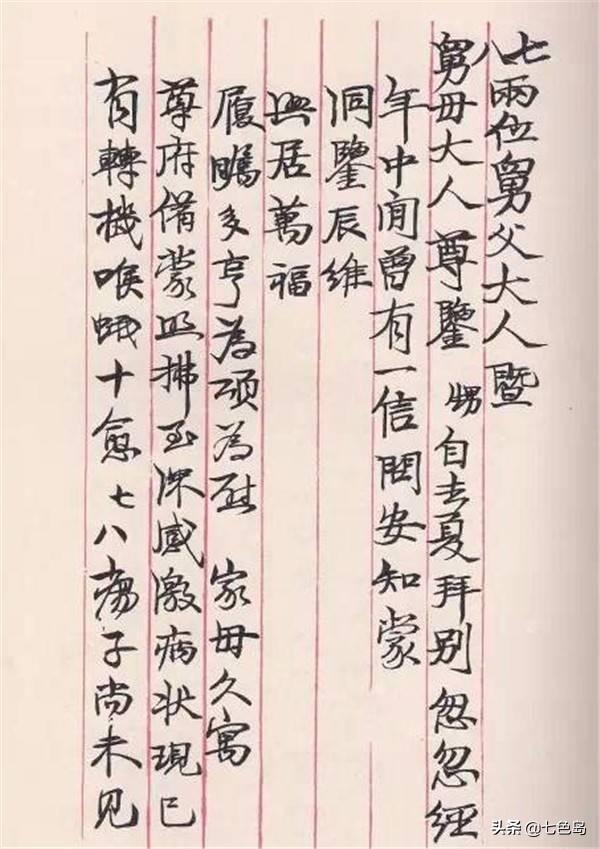 七八兩位舅父大人暨
舅母大人尊鑒 甥自去夏拜别忽忽經
年中間曾有一信問安知蒙
洞鑒辰維
興居萬福
履﻿祉多亨為頌為慰 家母久寓
尊府備蒙照拂至深感激病狀現已
有轉機喉蛾十愈七八瘍子尚未見
头条@七色岛